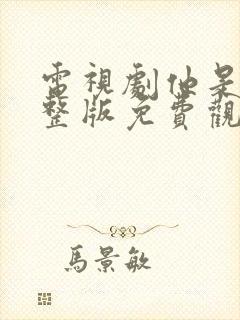 電視劇仙是
整版免費觀
馬景敏